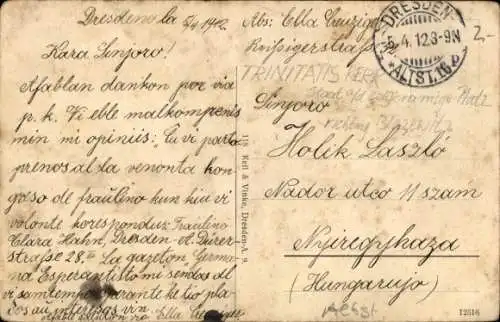 Dresdeno la 5/4 1912.
Kara Sinjoro!
Afablan dankon por via
p. k. Vi eble malkomprenis
min mi opiniis: Ĉu vi parto
prenos al la venonta kon
goso de fraŭlino kun kiu vi
volonte korespondus Fraŭlino
Clara Hahn, Dresden-A. Dürer
straße 28. II La gazeton, Germa
na Esperantisto mi sendas al
vi samtempe esperante ke tio pla
ĉos au interesas vin
Ella
118 Keil & Vinke, Dresden-A. 9.
Abs: Ella
Reißigerstraße
DRESDEN
5.4.12.8-9N
ALTST. 16.
2-
TRINITATIS
Platz
Sinjoro
Holik Laszló
Nador utco 11 szam
Nyiregyhaza
(Hungarujo)
12516